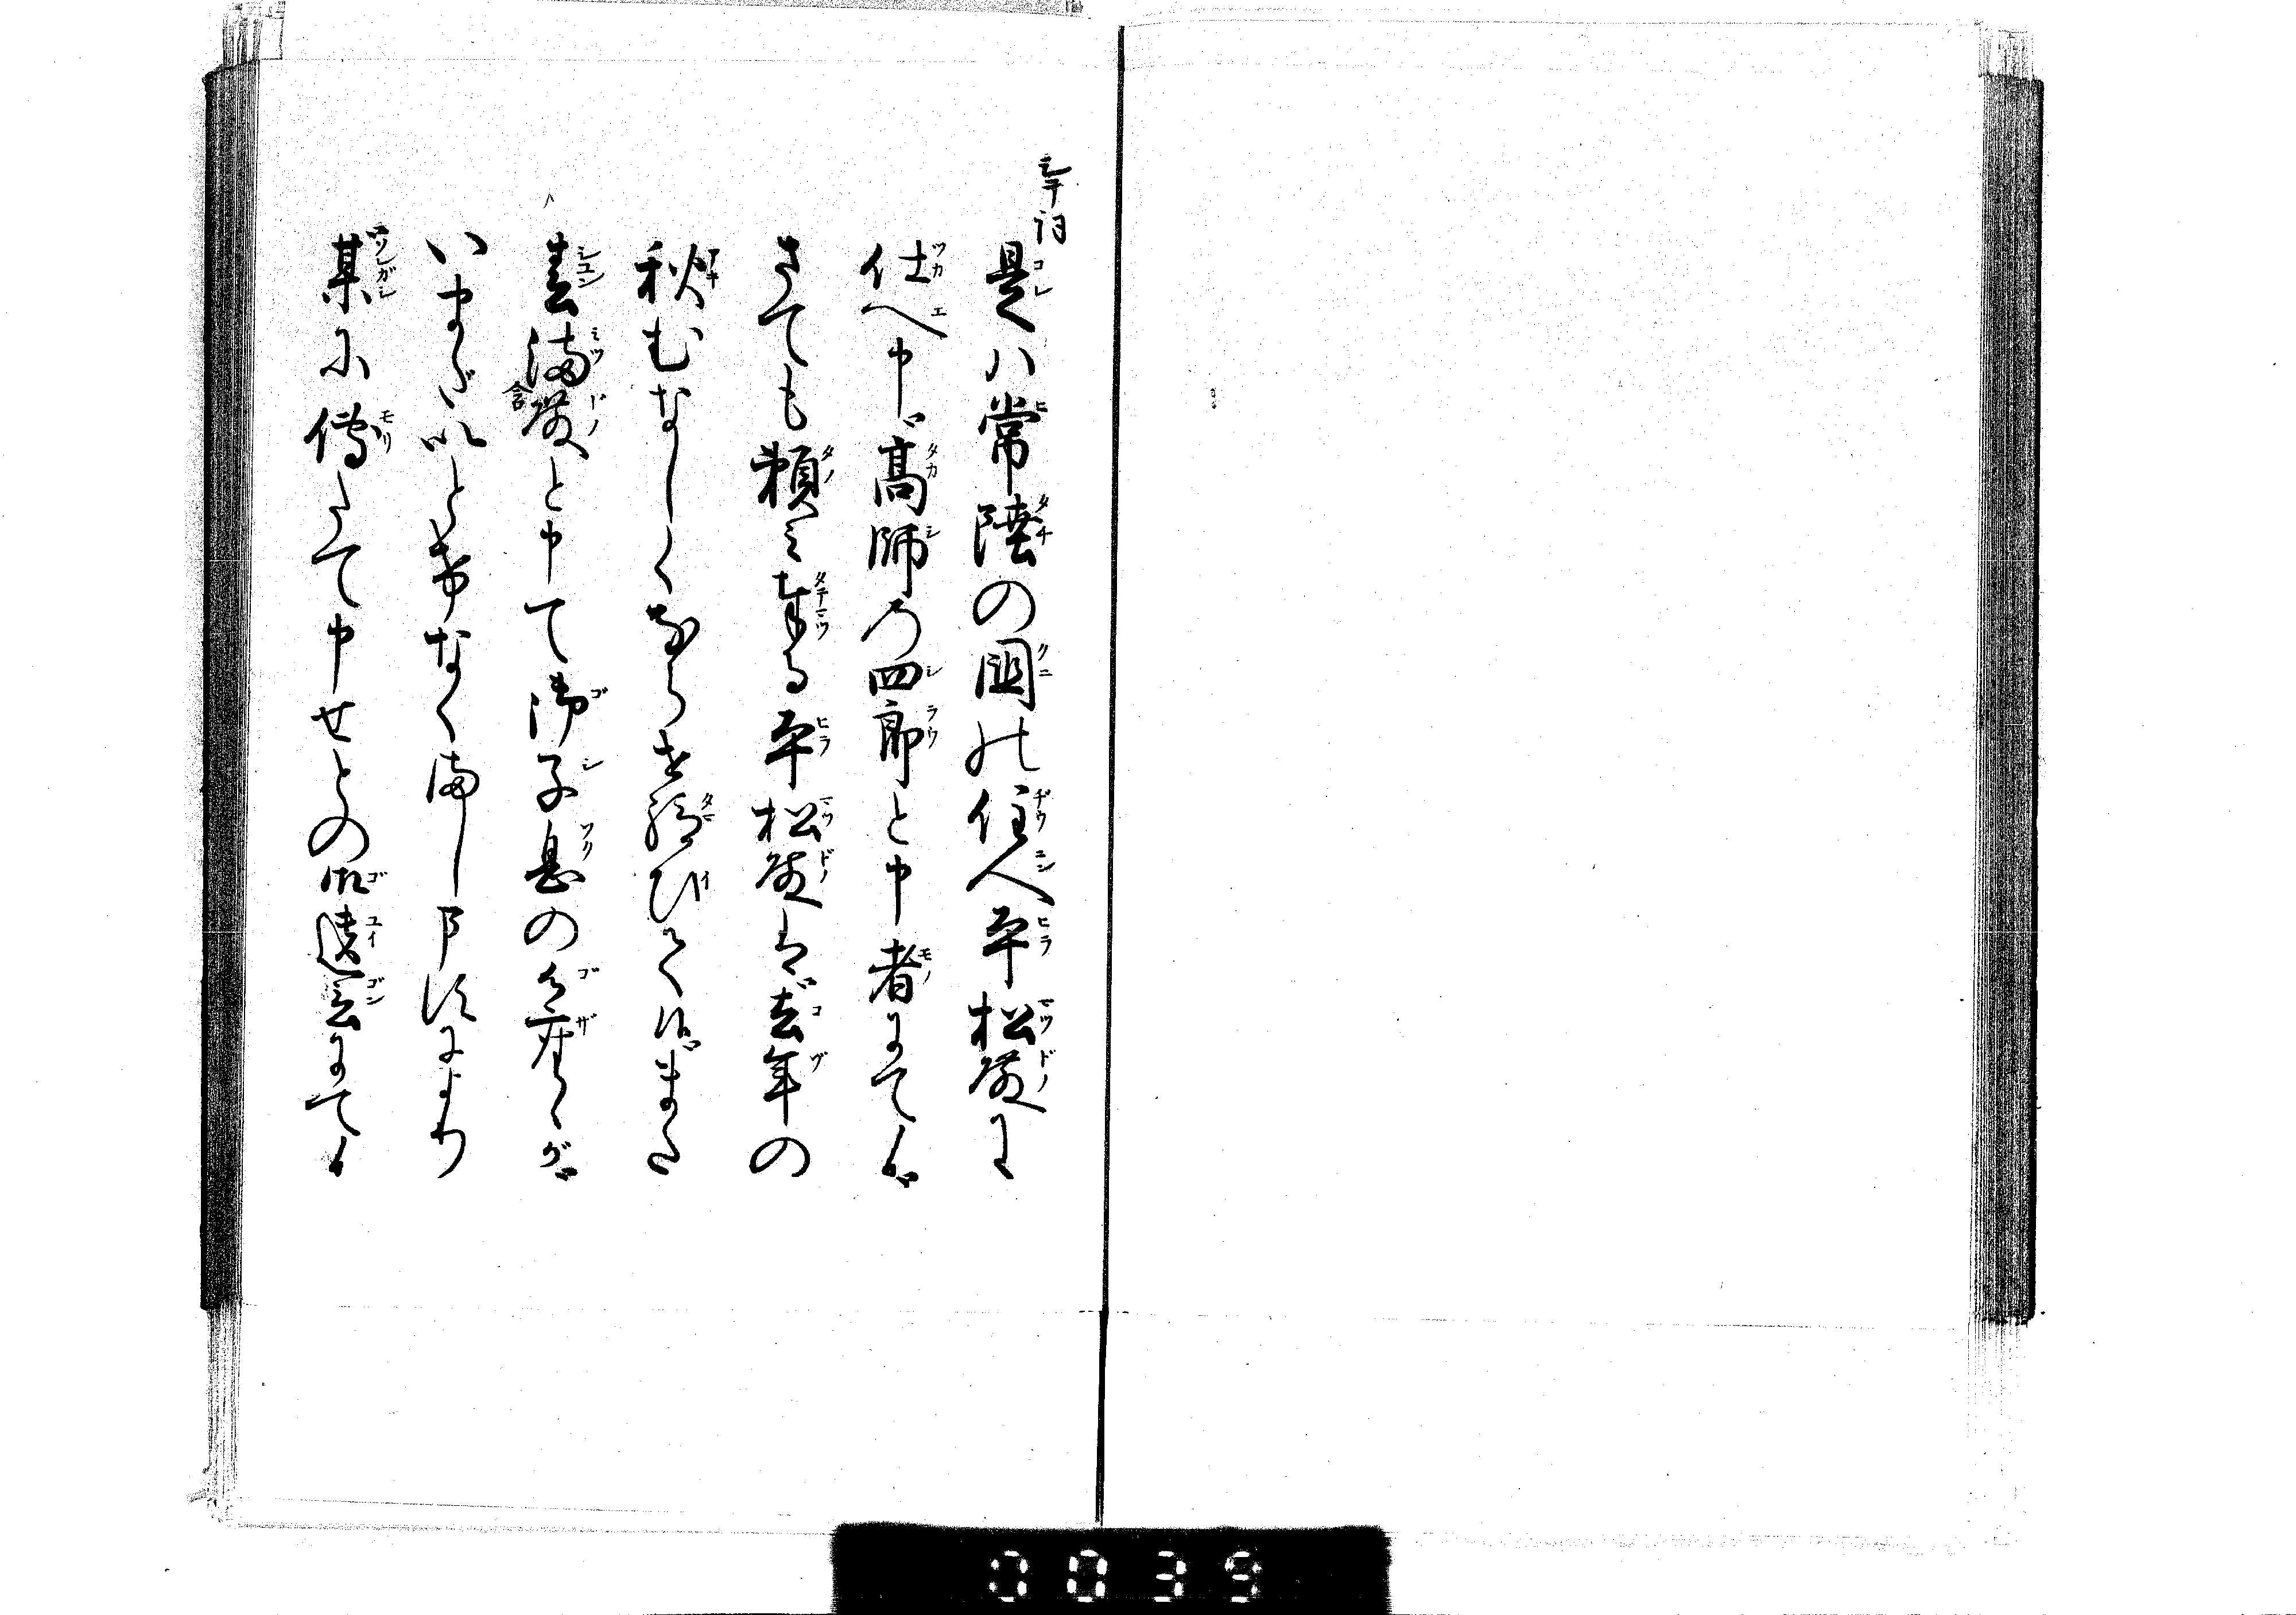 シテ詞
是ハ常陸の国の住人平松殿に
仕へ申高師の四郎と申者にて候
さても頼み奉る平松殿は去年の
秋むなしくならせ給ひて候また
春満殿と申て御子息の御座候が
いまだいとけなく御座候により
某に傅たて申せとの御遺言にて候
0039